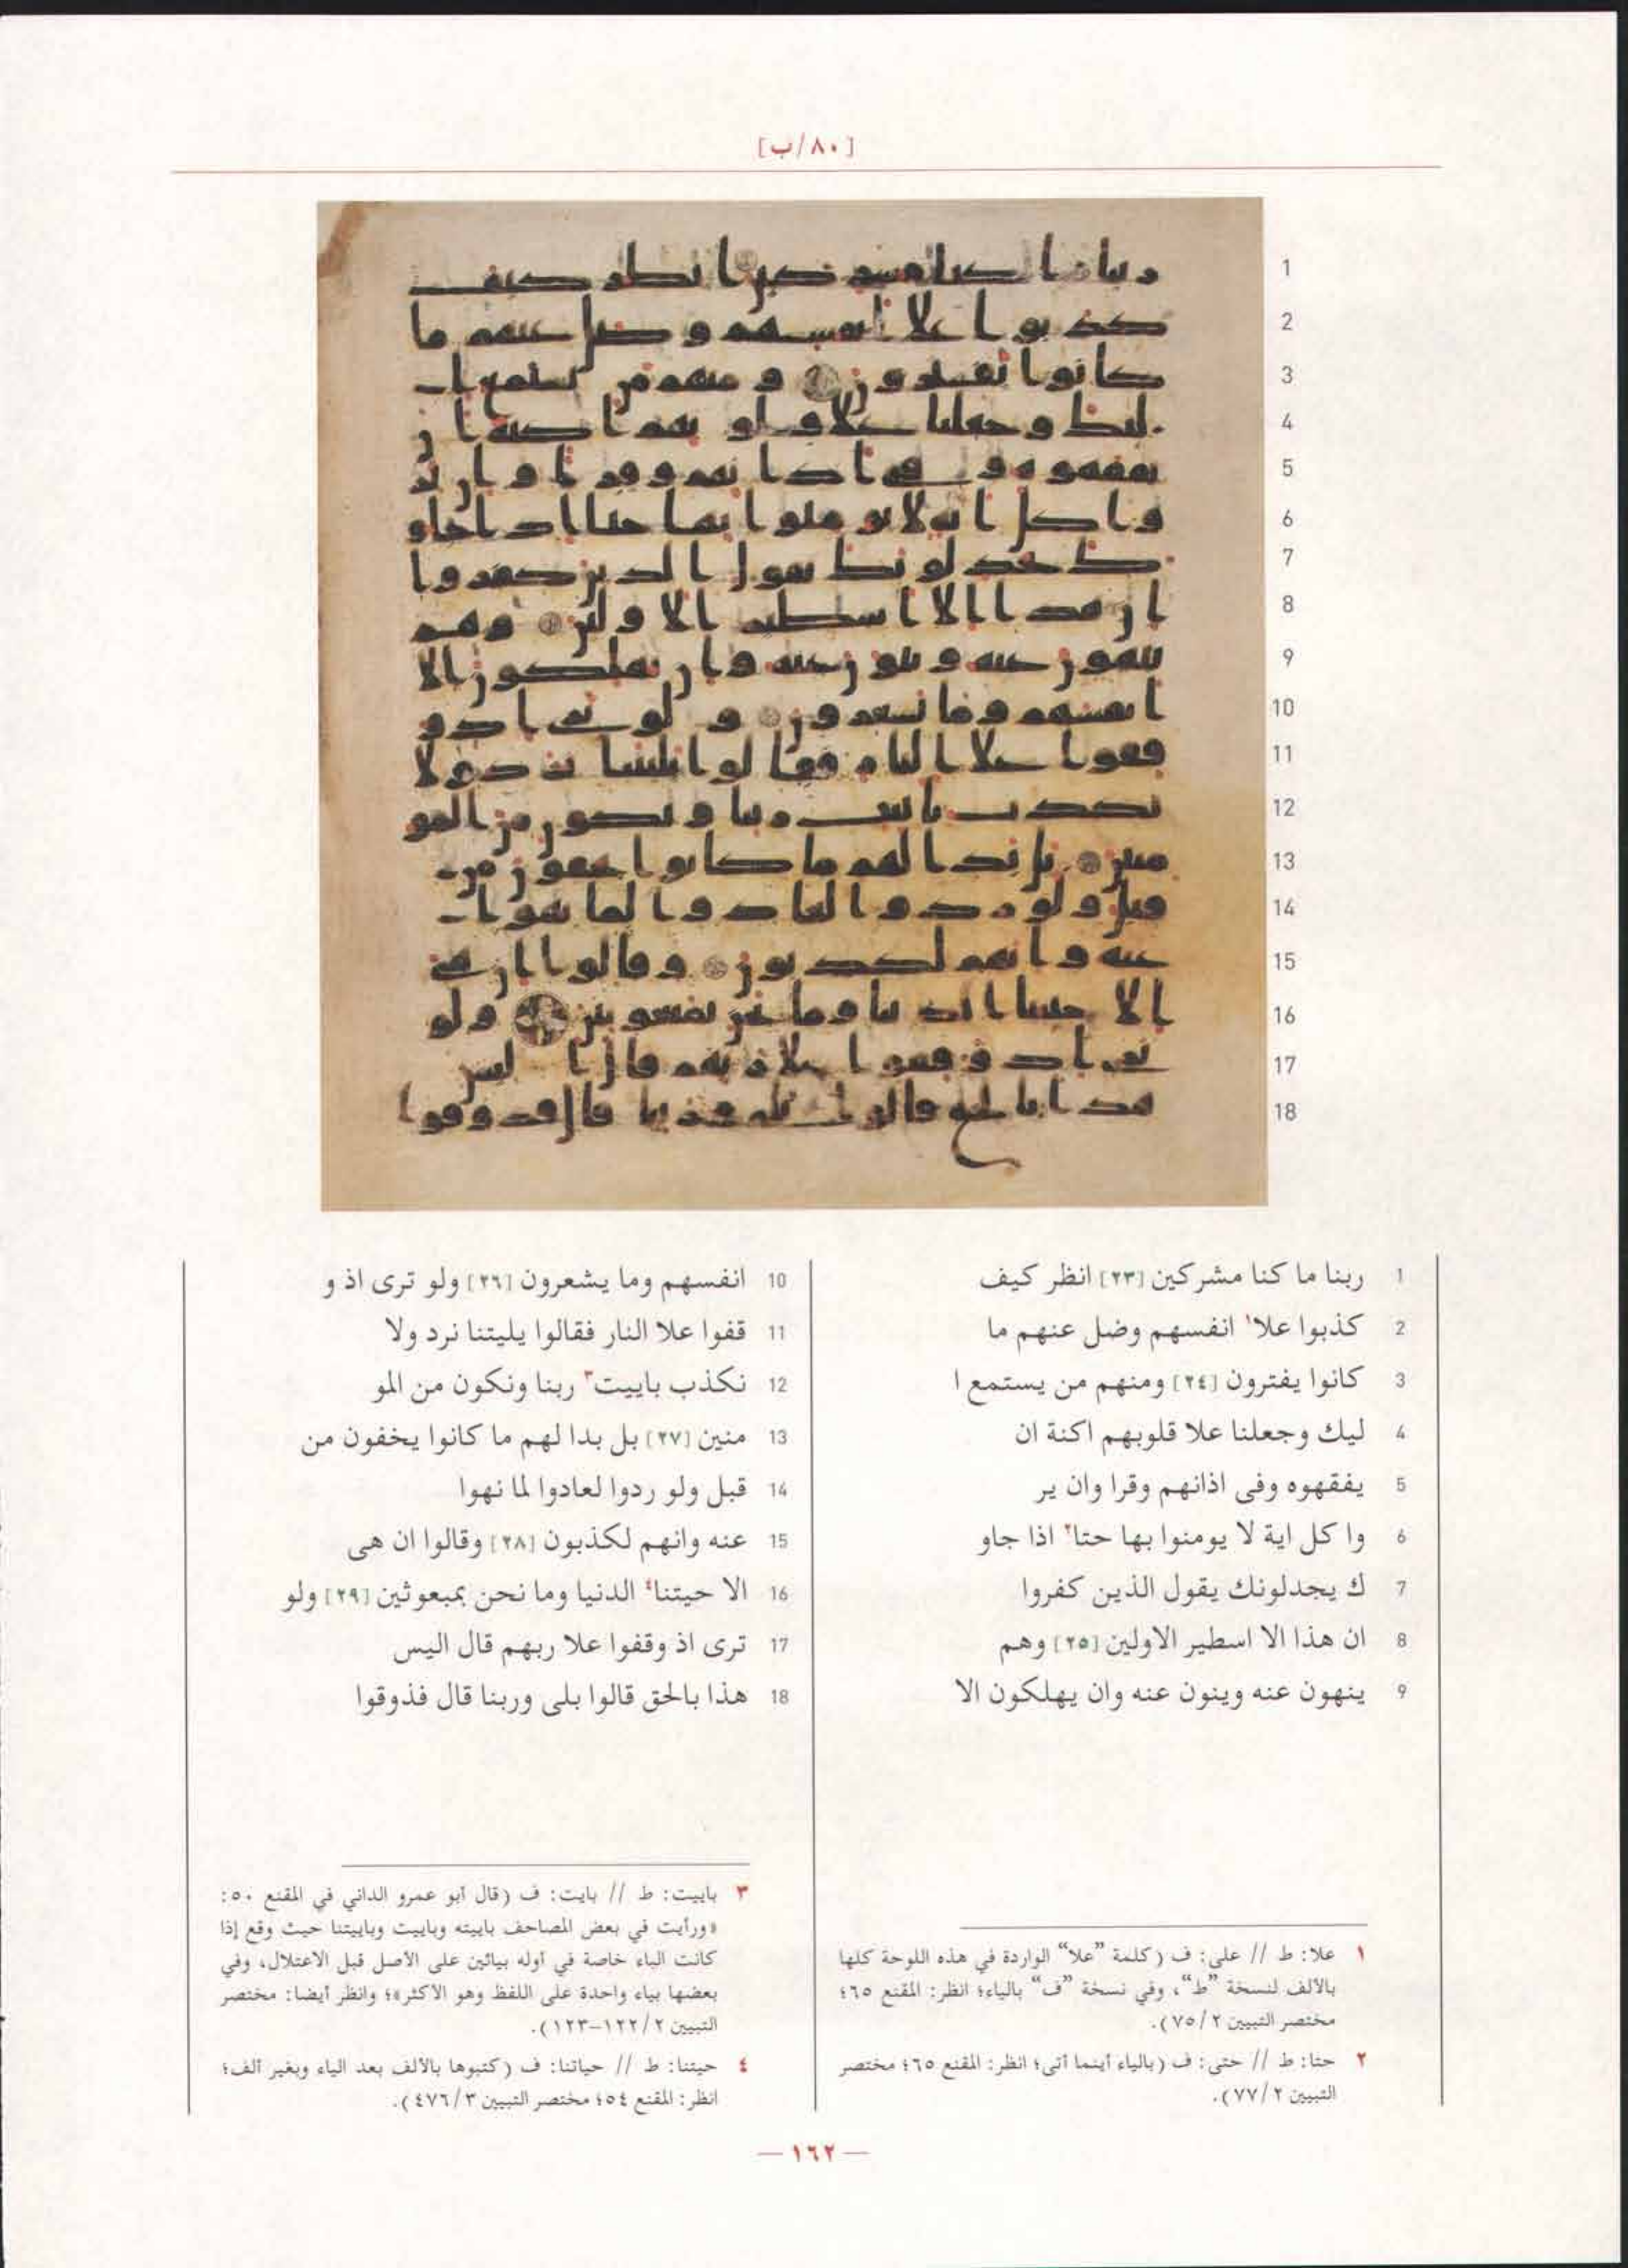 [٨٠/ب]
1 ربنا ما كنا مشركين [٢٣] انظر كيف
2 كذبوا علا١ انفسهم وضل عنهم ما
3 كانوا يفترون [٢٤] ومنهم من يستمع ا
4 ليك وجعلنا علا قلوبهم اكنة ان
5 يفقهوه وفى اذانهم وقرا وان ير
6 وا كل اية لا يومنوا بها حتا٢ اذا جاو
7 ك يجدلونك يقول الذين كفروا
8 ان هذا الا اسطير الاولين [٢٥] وهم
9 ينهون عنه وينون عنه وان يهلكون الا
10 انفسهم وما يشعرون [٢٦] ولو ترى اذ و
11 قفوا علا النار فقالوا يليتنا نرد ولا
12 نكذب باييت٣ ربنا ونكون من المو
13 منين [٢٧] بل بدا لهم ما كانوا يخفون من
14 قبل ولو ردوا لعادوا لما نهوا
15 عنه وانهم لكذبون [٢٨] وقالوا ان هى
16 الا حيتنا٤ الدنيا وما نحن بمبعوثين [٢٩] ولو
17 ترى اذ وقفوا علا ربهم قال اليس
18 هذا بالحق قالوا بلى وربنا قال فذوقوا
١ علا: ط // على: ف (كلمة ”علا“ الواردة في هذه اللوحة كلها
بالألف لنسخة ”ط“، وفي نسخة ”ف“ بالياء؛ انظر: المقنع ٦٥؛
مختصر التبيين ٢/ ٧٥).
٢ حتا: ط // حتى: ف (بالياء أينما أتى؛ انظر: المقنع ٦٥؛ مختصر
التبيين ٢/ ٧٧).
٣ باييت: ط // بايت: ف (قال أبو عمرو الداني في المقنع ٥٠:
«ورأيت في بعض المصاحف باييته وباييت وباييتنا حيث وقع إذا
كانت الباء خاصة في أوله بيائين على الأصل قبل الاعتلال، وفي
بعضها بياء واحدة على اللفظ وهو الأكثر»؛ وانظر أيضا: مختصر
التبيين ٢/ ١٢٢-١٢٣).
٤ حيتنا: ط // حياتنا: ف (كتبوها بالألف بعد الياء وبغير ألف؛
انظر: المقنع ٥٤؛ مختصر التبيين ٣/ ٤٧٦).
— ١٦٢ —